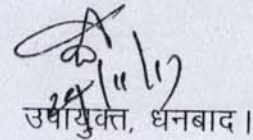 24/11/17
उपायुक्त, धनबाद।